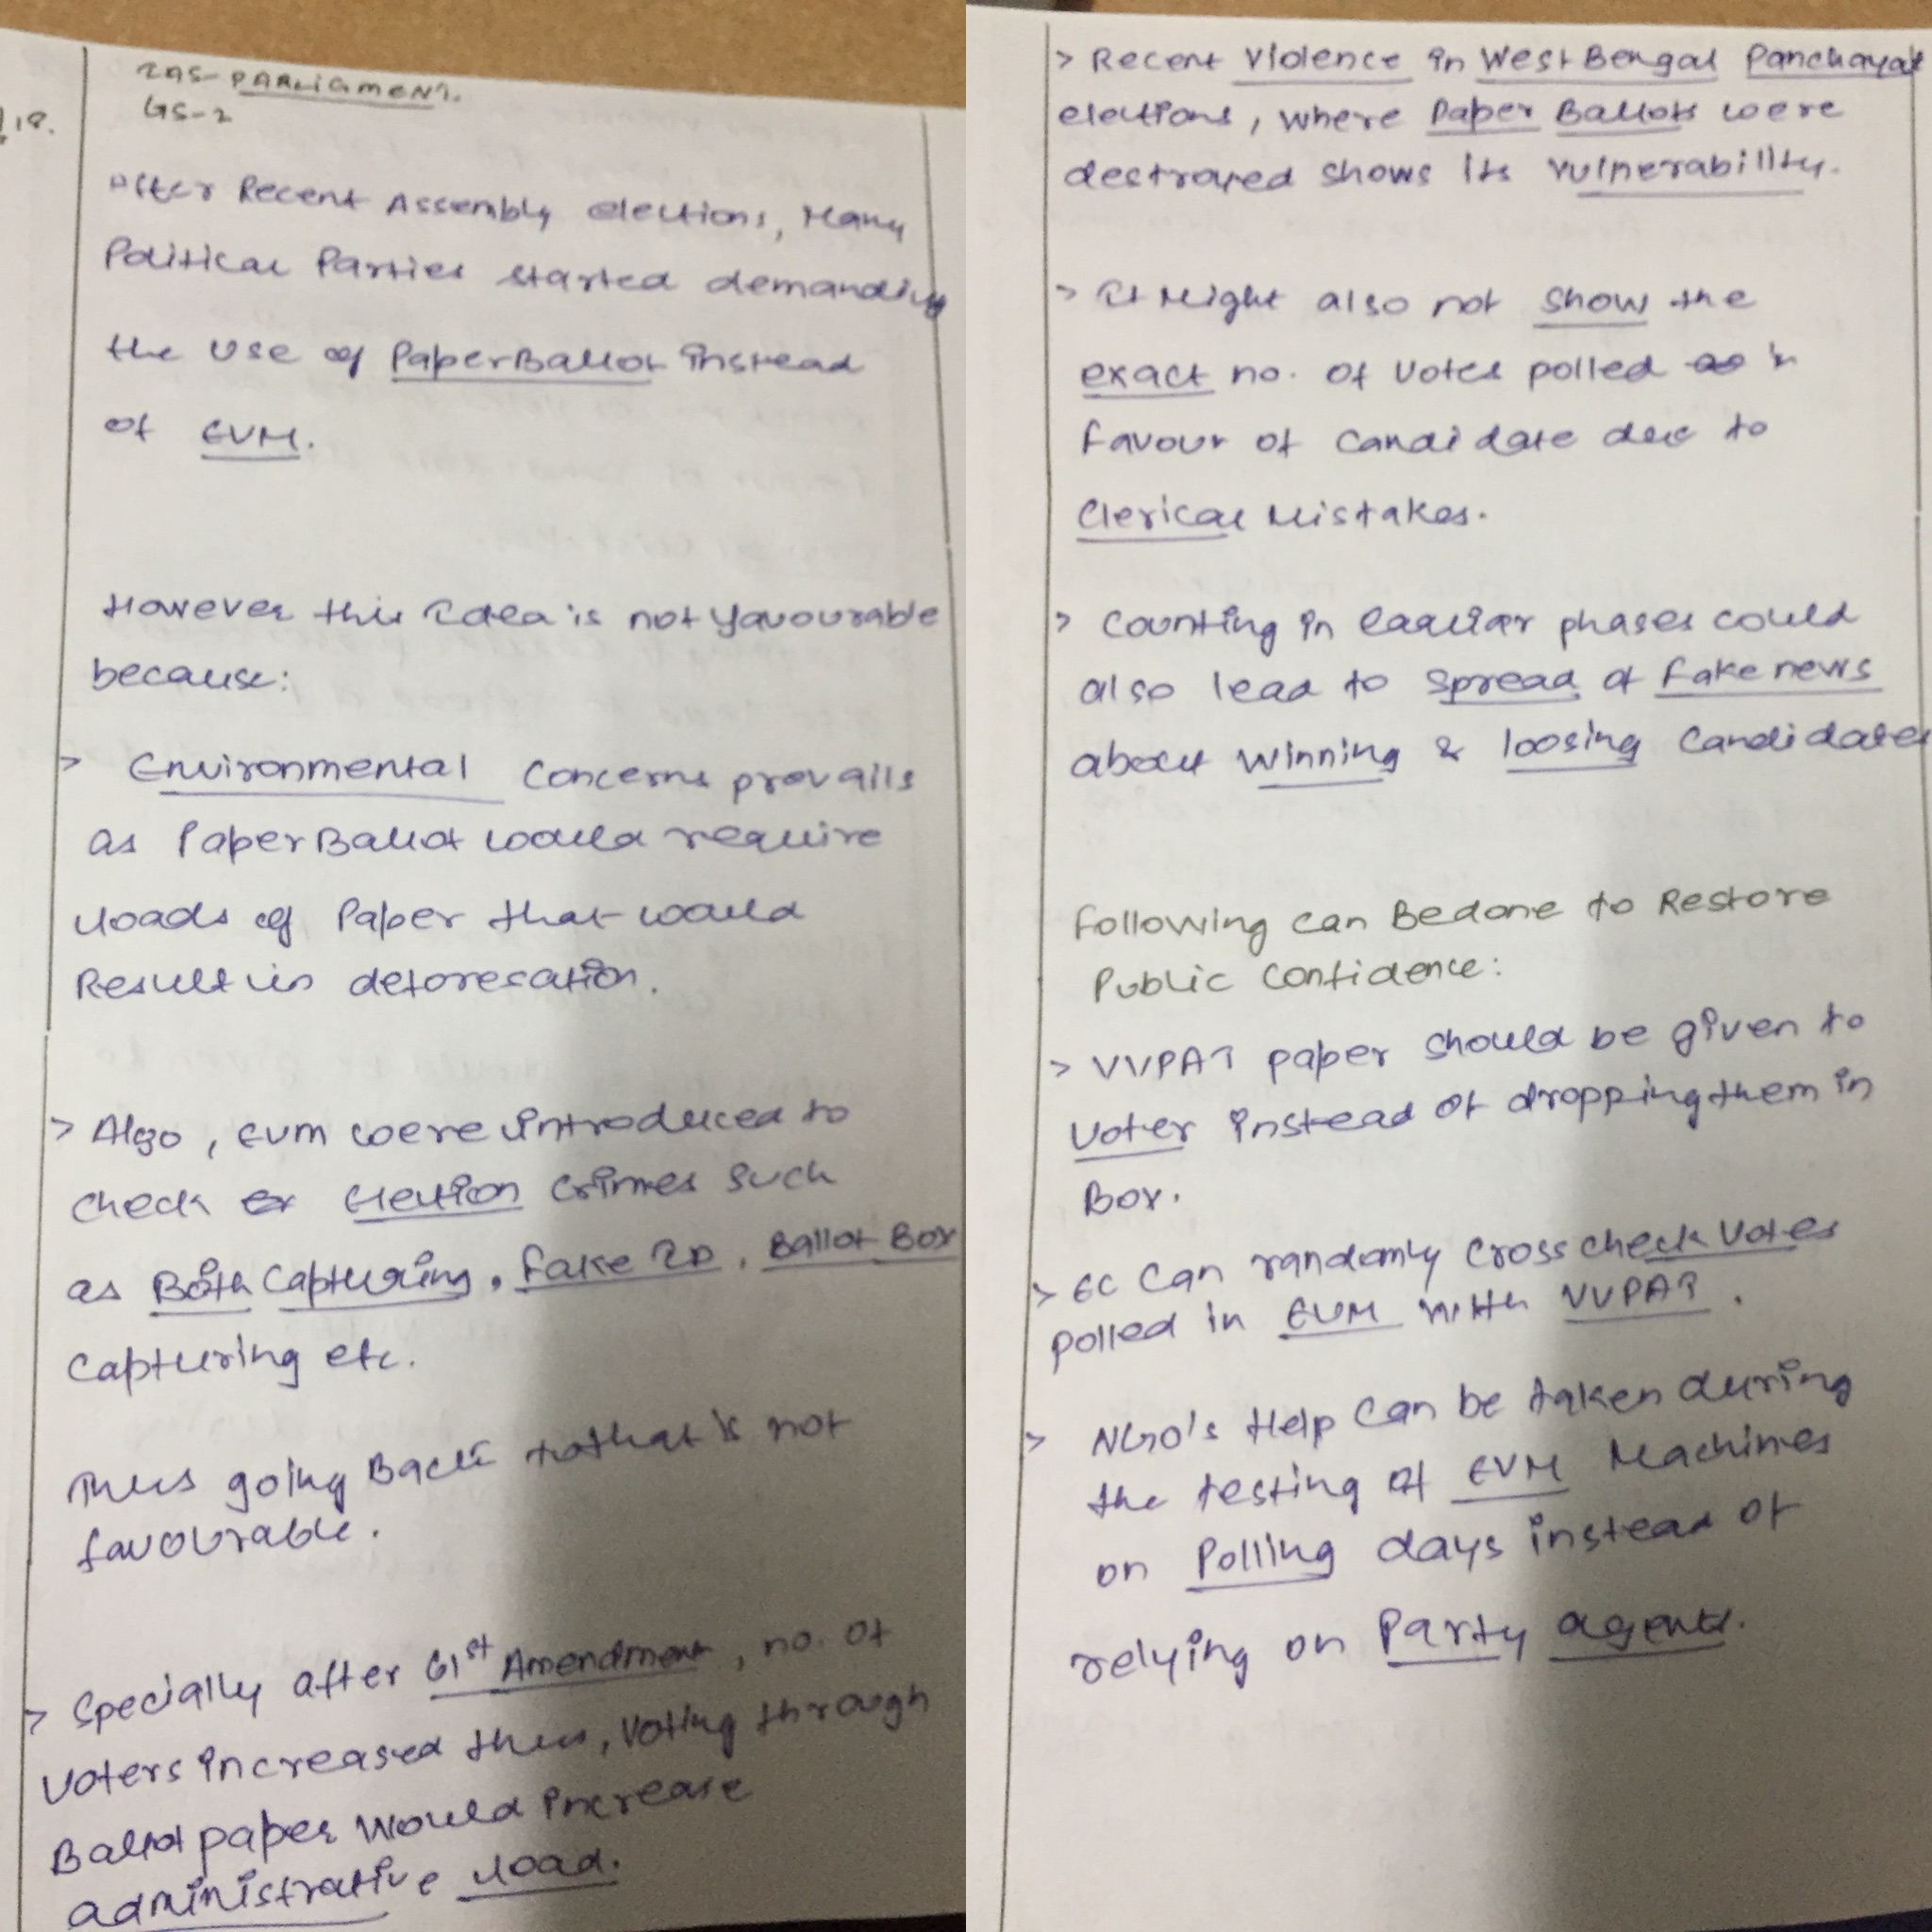 IAS-PARLiamENT.
GS-2
18.
After Recent Assembly elections, Many
Political Parties started demanding
the use of PaperBallot instead
of EVM.
However this Idea is not favourable
because:
> Environmental Concerns prevails
as Paper Ballot would require
loads of Paper that would
Result in deforesation.
> Also, EVM were introduced to
check Election crimes such
as Both Capturing, Fake ID, Ballot Box
Capturing etc.
Thus going Back to that is not
favourable.
> Specially after 61st Amendment, no. of
Voters increased thus, Voting through
Ballot paper would increase
administrative load.
> Recent Violence in West Bengal Panchayat
elections, where Paper Ballots were
destroyed shows its vulnerability.
> It Might also not show the
exact no. of Votes polled in
favour of Candidate due to
Clerical Mistakes.
> Counting in Earlier phases could
also lead to spread of fake news
about winning & loosing Candidates
Following can Be done to Restore
Public Confidence:
> VVPAT paper should be given to
Voter instead of dropping them in
Box.
> EC Can randomly Cross check Votes
polled in EVM with VVPAT.
> NGO's Help Can be taken during
the testing of EVM Machines
on Polling days instead of
relying on Party agents.